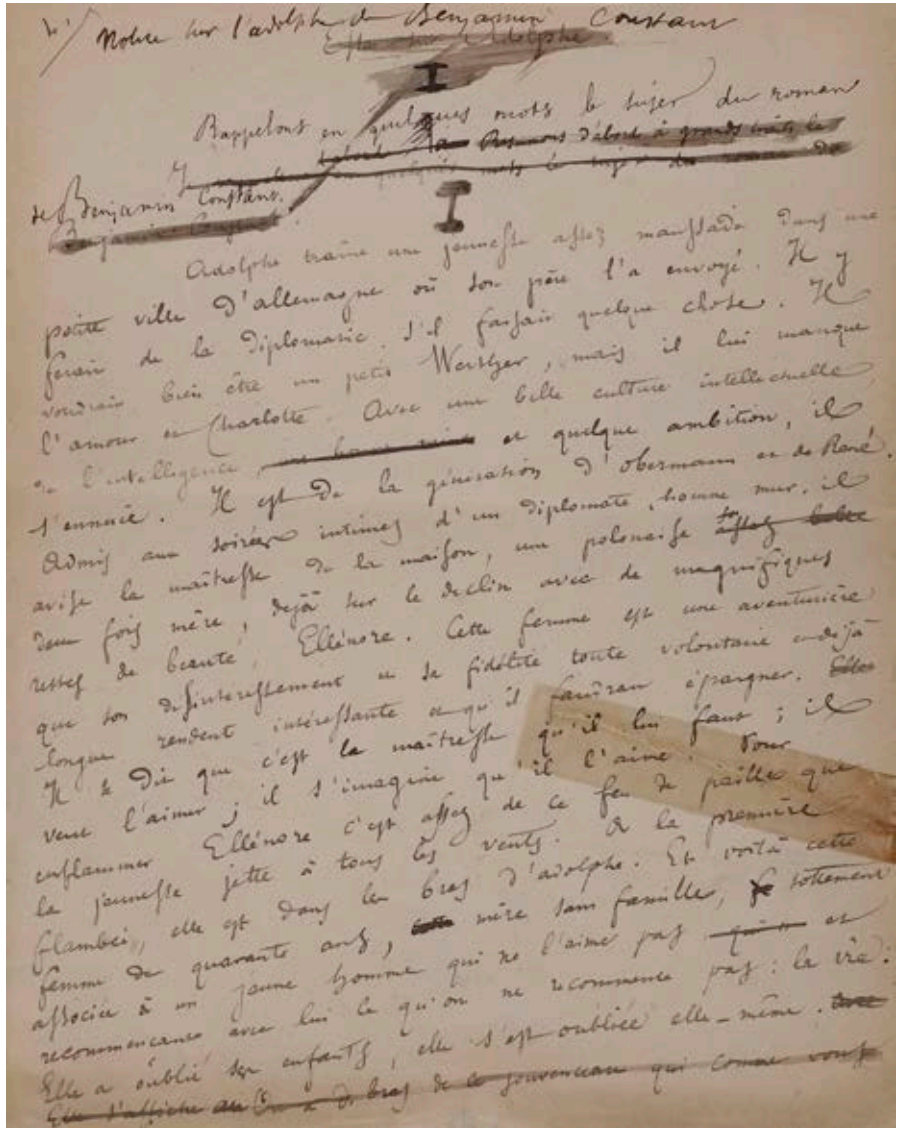 Notice sur l'adolphe de Benjamin Constant
Adolphe
I
Rappelons en quelques mots le sujet du roman
Resumons d'abord à grands traits le
en quelques mots le sujet du roman de
de Benjamin Constant.
Benjamin Constant
I
Adolphe traine une jeunesse assez maussade dans une
petite ville d'allemagne où son père l'a envoyé. Il y
ferait de la diplomatie s'il faisait quelque chose. Il
voudrait bien être un petit Werther, mais il lui manque
l'amour et Charlotte. Avec une belle culture intellectuelle
de l'intelligence, et quelque ambition, il
s'ennuie. Il est de la génération d'obermann et de René.
Admis aux soirées intimes d'un diplomate, homme mur, il
avise la maîtresse de la maison, une polonaise assez belle
deux fois mère, dejà sur le declin avec de magnifiques
restes de beauté, Ellénore. Cette femme est une aventurière
que son desinteressement et sa fidélité toute volontaire et dejà
longue rendent intéressante et qu'il faudrait épargner. Elle
Il se dit que c'est la maîtresse qu'il lui faut ; il
veut l'aimer ; il s'imagine qu'il l'aime. Pour
enflammer Ellénore c'est assez de ce feu de paille que
la jeunesse jette à tous les vents. A la première
flambée, elle est dans les bras d'adolphe. Et voilà cette
femme de quarante ans, mère sans famille, sottement
associée à un jeune homme qui ne l'aime pas et
recommencant avec lui ce qu'on ne recommence pas : la vie.
Elle a oublié ses enfants, elle s'est oubliée elle-même.
Elle s'affiche au bras de ce jouvenceau qui comme vous